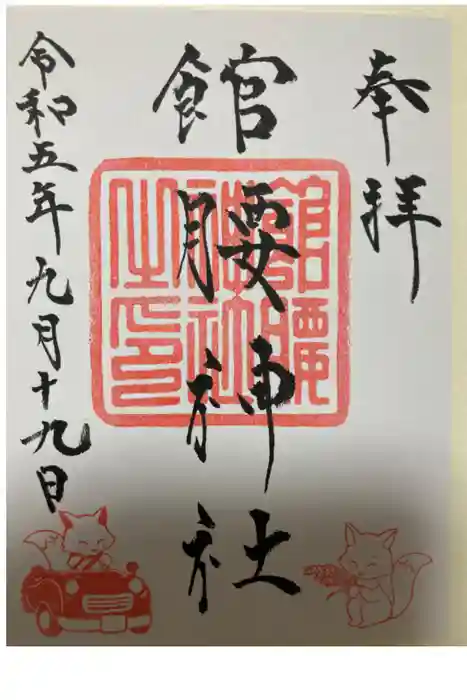 奉拝
館腰神社
館腰神社之印
令和五年九月十九日